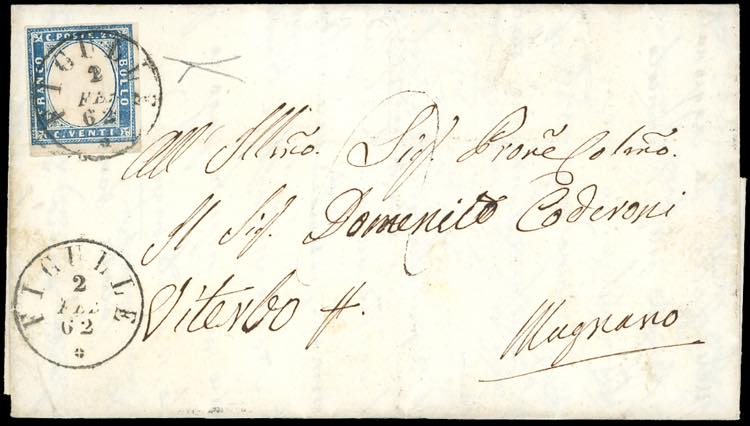 C. POSTE
FRANCO
BOLLO
C. VENTI
FIGULLE
2
FEB
62
All' Illm̃o. Sig. Prone Colm̃o.
Il Sig. Domenico Coderoni
Viterbo
Magnano
FIGULLE
2
FEB
62